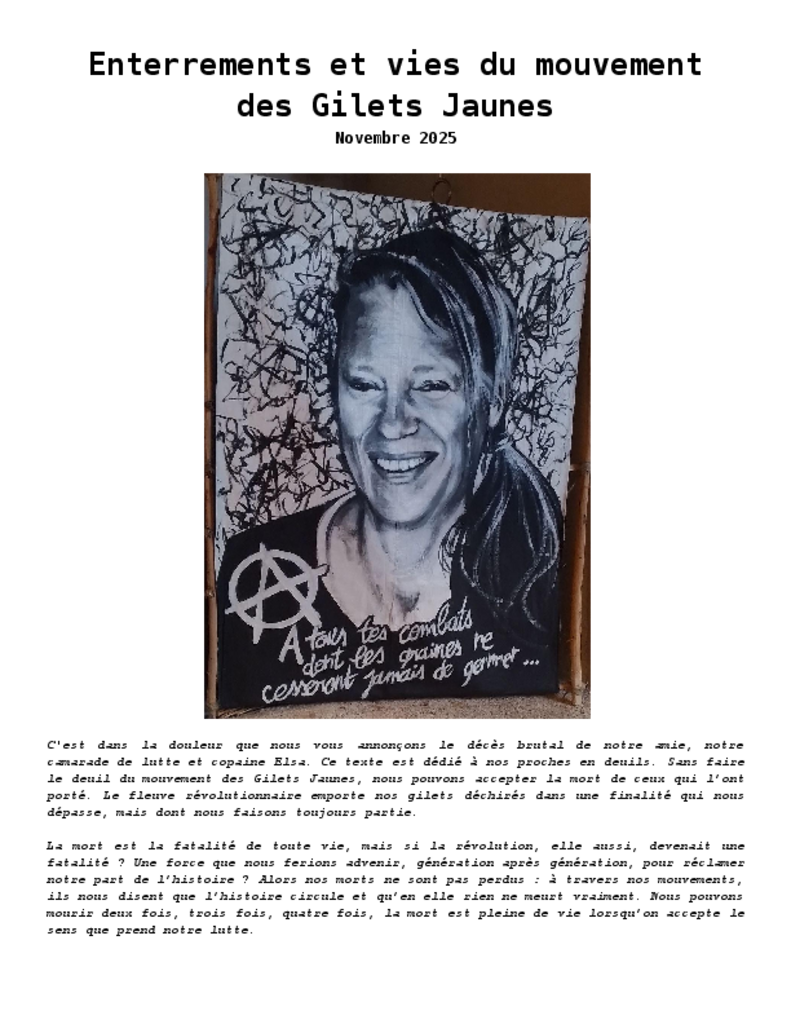 Enterrements et vies du mouvement
des Gilets Jaunes
Novembre 2025
A tous tes combats
dont les graines ne
cesseront jamais de germer...
C'est dans la douleur que nous vous annonçons le décès brutal de notre amie, notre
camarade de lutte et copaine Elsa. Ce texte est dédié à nos proches en deuils. Sans faire
le deuil du mouvement des Gilets Jaunes, nous pouvons accepter la mort de ceux qui l'ont
porté. Le fleuve révolutionnaire emporte nos gilets déchirés dans une finalité qui nous
dépasse, mais dont nous faisons toujours partie.
La mort est la fatalité de toute vie, mais si la révolution, elle aussi, devenait une
fatalité ? Une force que nous ferions advenir, génération après génération, pour réclamer
notre part de l'histoire ? Alors nos morts ne sont pas perdus : à travers nos mouvements,
ils nous disent que l'histoire circule et qu'en elle rien ne meurt vraiment. Nous pouvons
mourir deux fois, trois fois, quatre fois, la mort est pleine de vie lorsqu'on accepte le
sens que prend notre lutte.